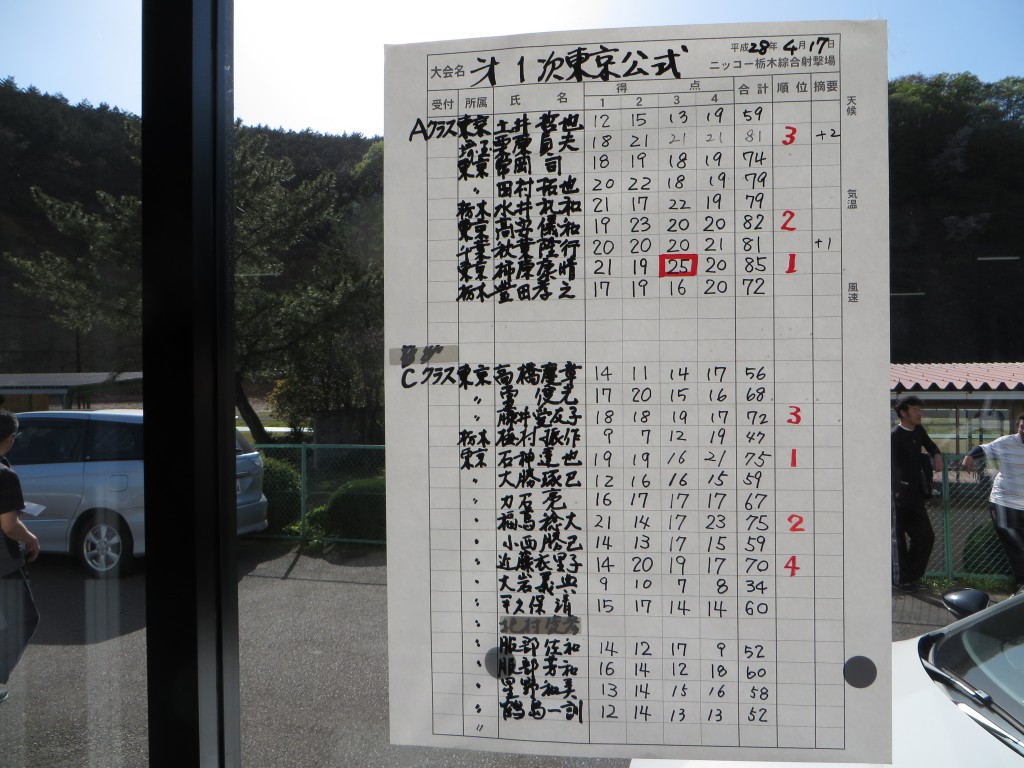 平成28年 4月17日
大会名 才1次東京公式 ニッコー栃木綜合射撃場
受付 所属 氏名 得点 1 2 3 4 合計 順位 摘要
天候
気温
風速
Aクラス 東京 土井哲也 12 15 13 19 59
18 21 21 21 81 3 +2
東京 岡 司 18 19 18 19 74
〃 田村拓也 20 22 18 19 79
栃木 水井 和 21 17 22 19 79
東京 高 儀和 19 23 20 20 82 2
千葉 秋葉隆行 20 20 20 21 81 +1
東京 柿原康晴 21 19 25 20 85 1
栃木 豊田孝之 17 19 16 20 72
Cクラス 東京 高橋慶幸 14 11 14 17 56
〃 俊光 17 20 15 16 68
〃 藤井 友子 18 18 19 17 72 3
栃木 村振作 9 7 12 19 47
東京 石神達也 19 19 16 21 75 1
〃 大勝琢巳 12 16 16 15 59
〃 力石亮 16 17 17 17 67
〃 福島裕大 21 14 17 23 75 2
〃 小西勝己 14 13 17 15 59
〃 近藤衣里子 14 20 19 17 70 4
〃 大岩義典 9 10 7 8 34
〃 久保靖 15 17 14 14 60
〃
〃 服部佐和 14 12 17 9 52
〃 服部芳和 16 14 12 18 60
〃 星野和美 13 14 15 16 58
〃 鶴島一訓 12 14 13 13 52
〃